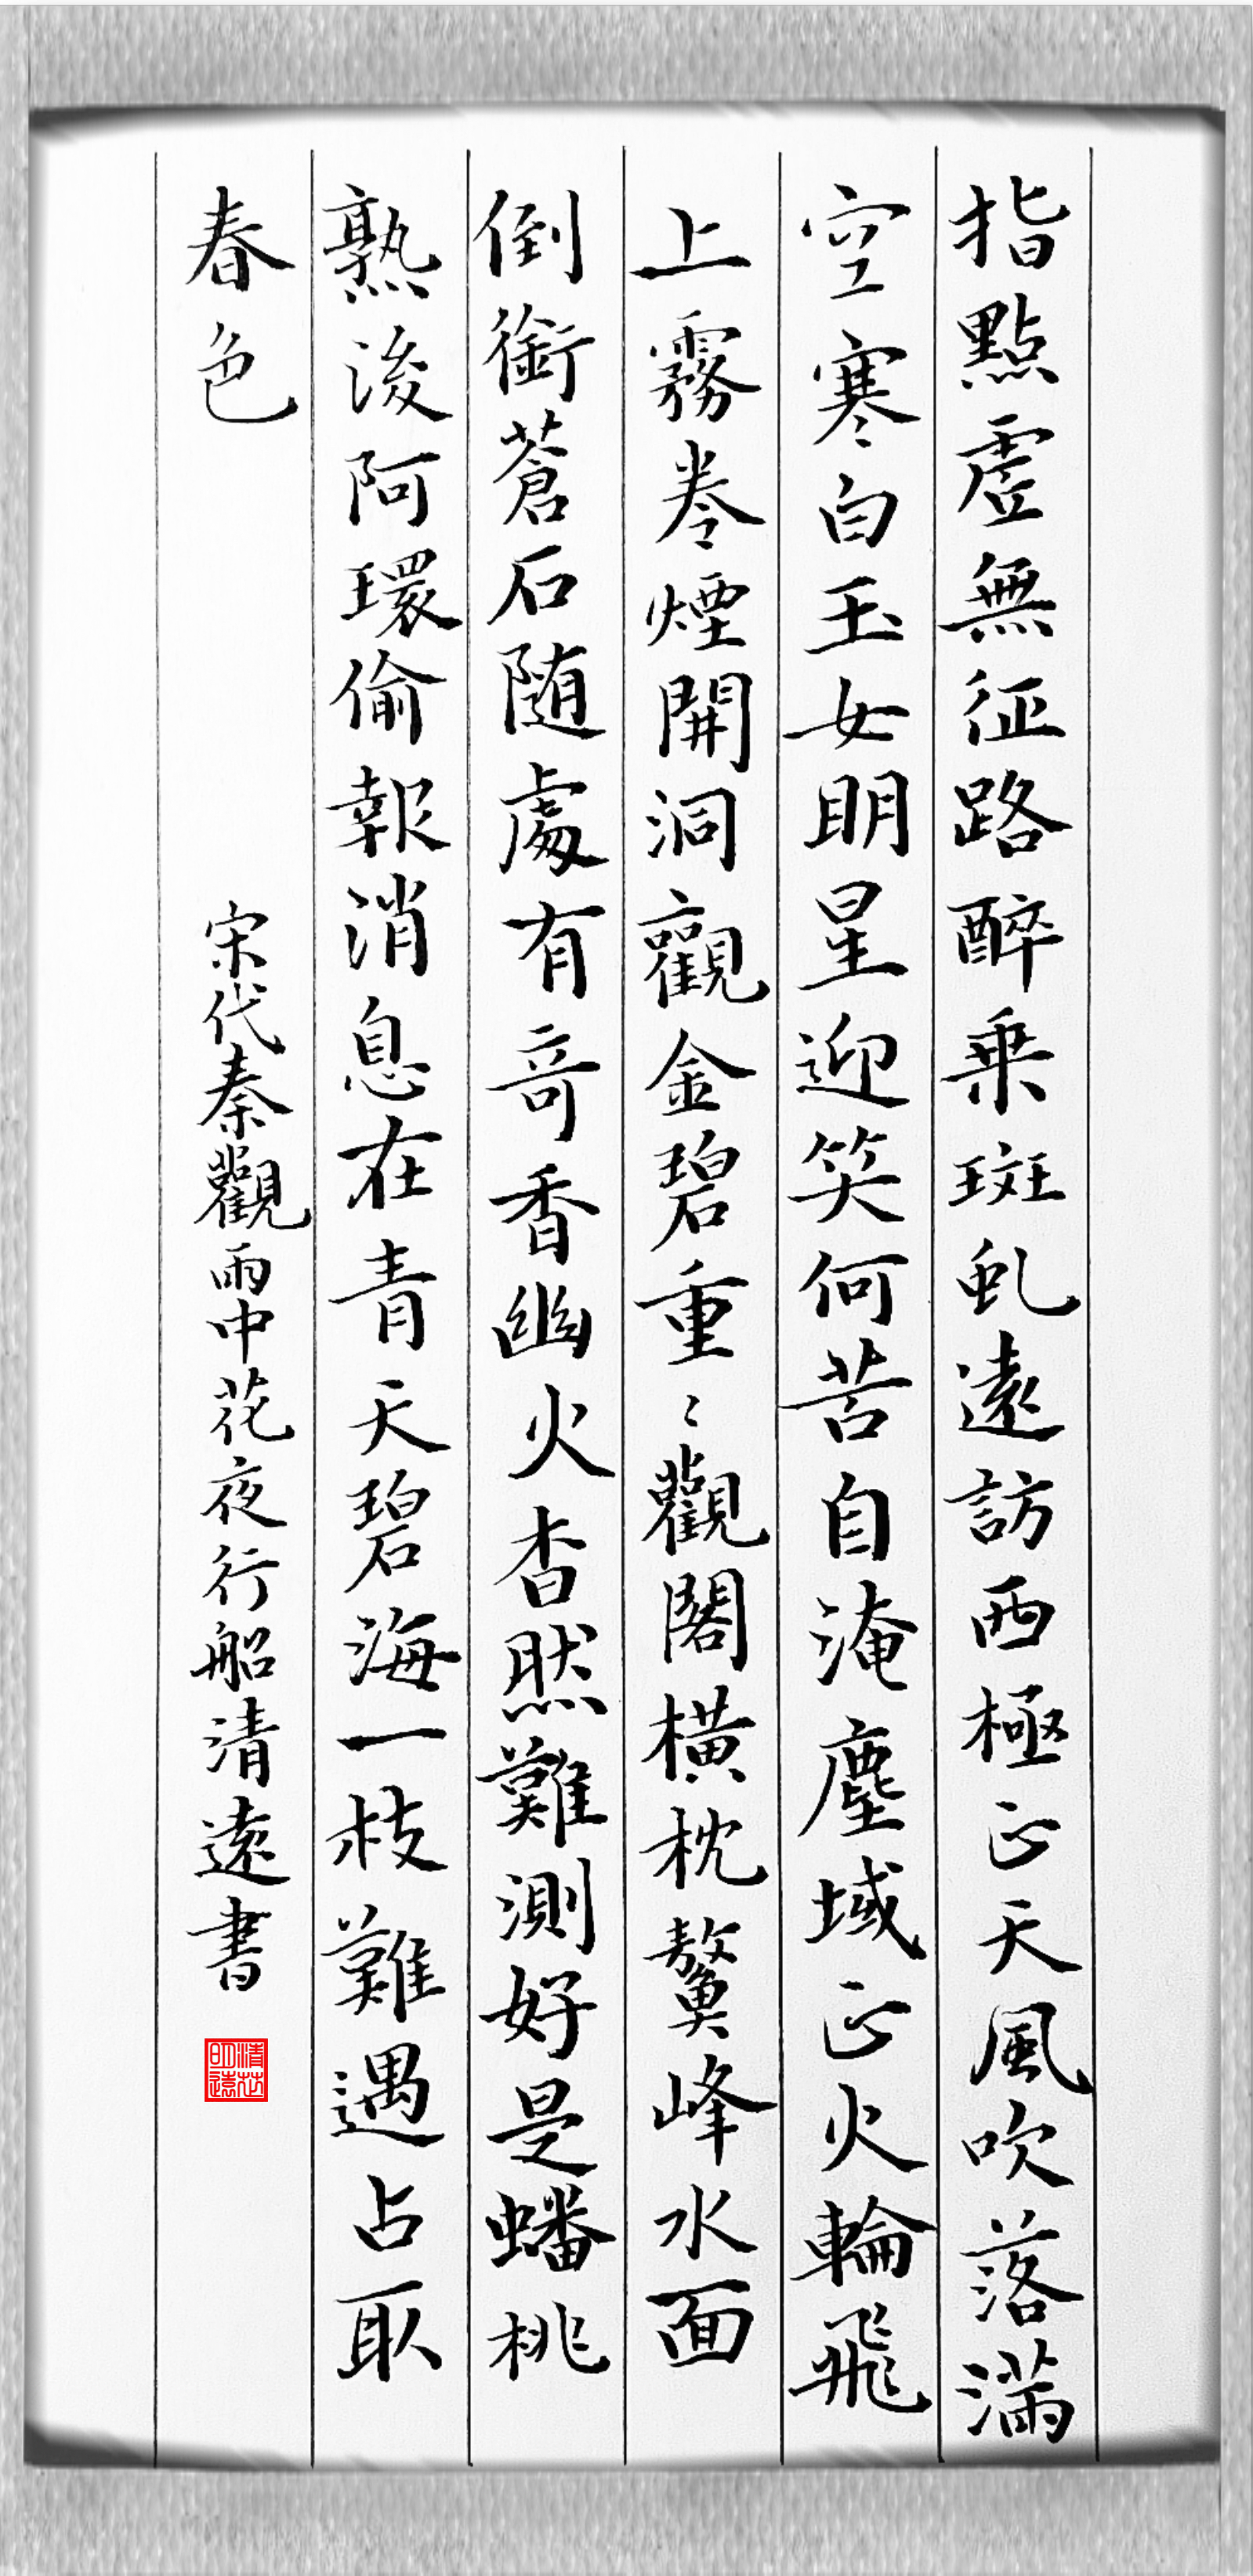 指點虛無征路醉乗斑虬遠訪西極正天風吹落滿
空寒白玉女明星迎笑何苦自淹塵域正火輪飛
上霧卷煙開洞觀金碧重重觀閣橫枕鰲峰水面
倒銜蒼石随處有奇香幽火杳然難測好是蟠桃
熟後阿環偷報消息在青天碧海一枝難遇占取
春色
宋代秦觀雨中花夜行船清遠書